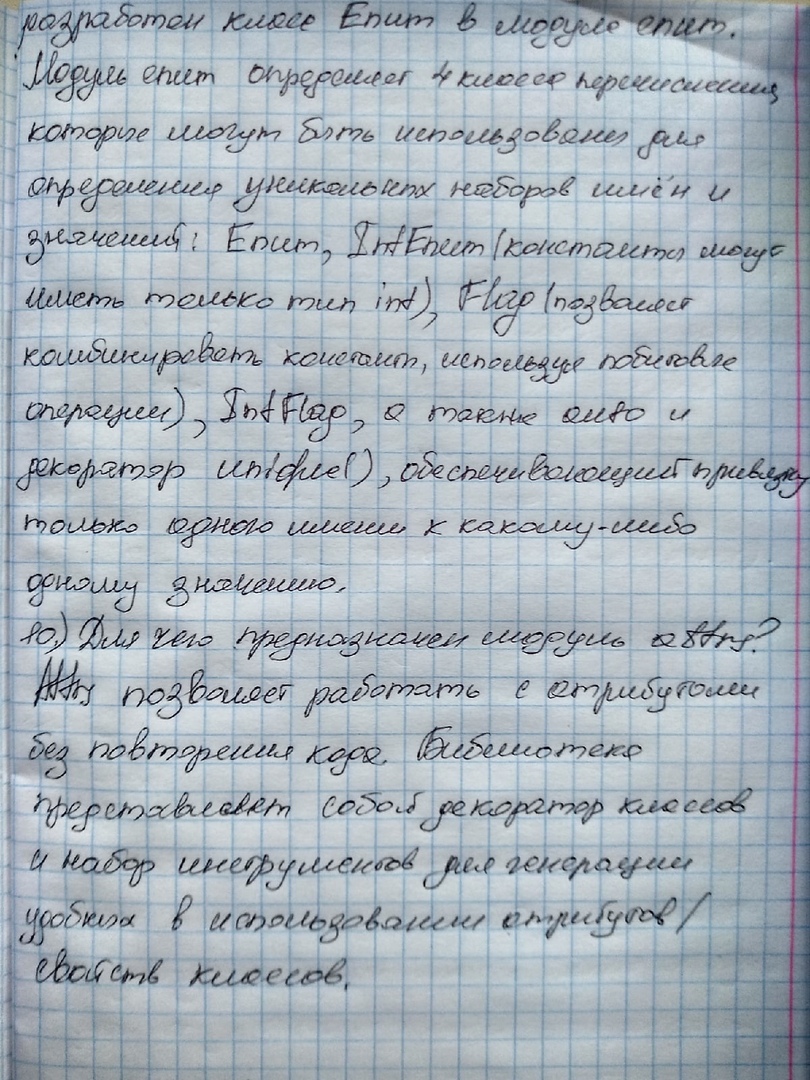 разработан класс Enum в модуле enum.
Модуль enum определяет 4 класса перечисления,
которые могут быть использованы для
определения уникальных наборов имён и
значений: Enum, IntEnum (константы могут
иметь только тип int), Flag (позволяет
комбинировать констант, используя побитовые
операции), IntFlag, а также auto и
декоратор unique(), обеспечивающий привязку
только одного имени к какому-либо
одному значению.
10.) Для чего предназначен модуль attrs?
Attrs позволяет работать с атрибутами
без повторения кода. Библиотека
представляет собой декоратор классов
и набор инструментов для генерации
удобных в использовании атрибутов/
свойств классов.